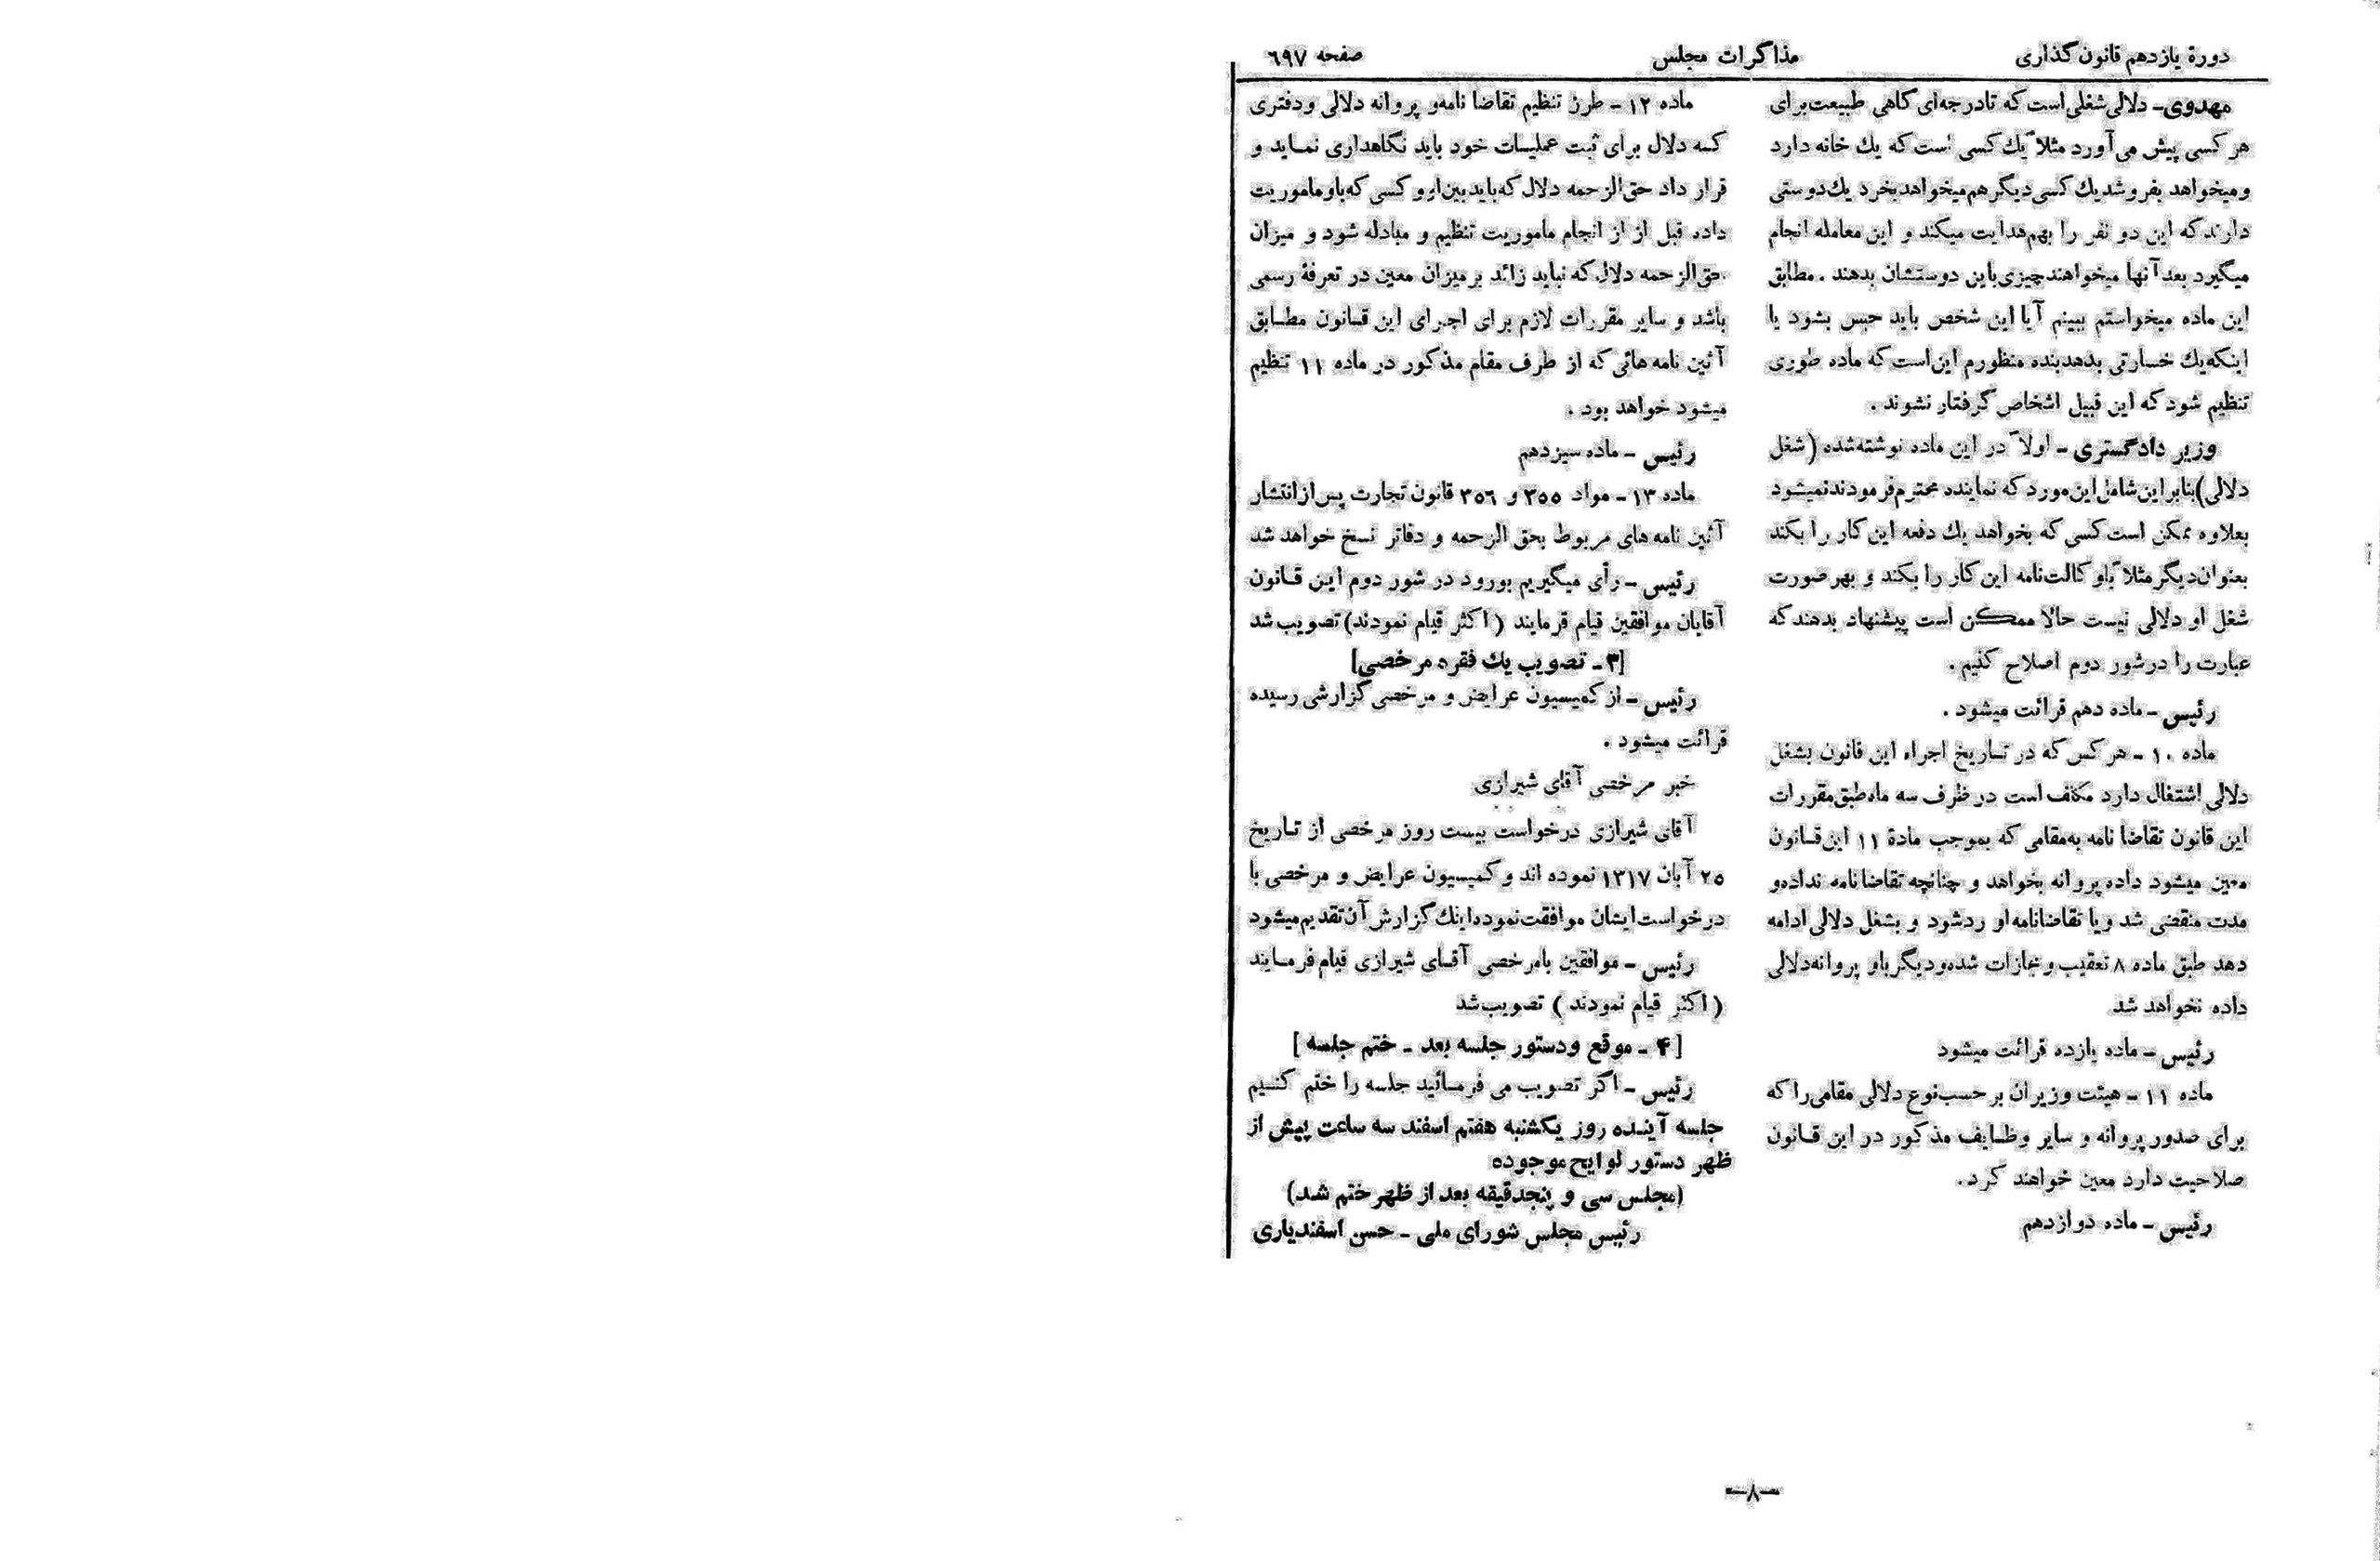 دورۀ یازدهم قانون گذاری
مذاکرات مجلس
صفحه ۶۹۷
مهدوی- دلالی شغلی است که تا درجه‌ای گاهی طبیعت برای
هر کسی پیش می‌آورد مثلاً یك کسی است که یك خانه دارد
و میخواهد بفروشد یك کسی دیگر هم میخواهد بخرد یك دوستی
دارند که این دو نفر را بهم هدایت میکند و این معامله انجام
میگیرد بعد آنها میخواهند چیزی باین دوستشان بدهند . مطابق
این ماده میخواستم ببینم آیا این شخص باید حبس بشود یا
اینکه یك خسارتی بدهد بنده منظورم این است که ماده طوری
تنظیم شود که این قبیل اشخاص گرفتار نشوند .
وزیر دادگستری - اولاً در این ماده نوشته شده (شغل
دلالی) بنابراین شامل این مورد که نماینده محترم فرمودند نمیشود
بعلاوه ممکن است کسی که بخواهد یك دفعه این کار را بکند
بعنوان دیگر مثلاً با وکالت نامه این کار را بکند و بهر صورت
شغل او دلالی نیست حالا ممکن است پیشنهاد بدهند که
عبارت را در شور دوم اصلاح کنیم .
رئیس - ماده دهم قرائت میشود .
ماده ۱۰ - هر کس که در تاریخ اجراء این قانون بشغل
دلالی اشتغال دارد مکلف است در ظرف سه ماه طبق مقررات
این قانون تقاضا نامه به مقامی که بموجب مادۀ ۱۱ این قانون
معین میشود داده پروانه بخواهد و چنانچه تقاضا نامه نداده و
مدت منقضی شد و یا تقاضانامه او رد شود و بشغل دلالی ادامه
دهد طبق ماده ۸ تعقیب و مجازات شده و دیگر باو پروانه دلالی
داده نخواهد شد
رئیس - ماده یازده قرائت میشود
ماده ۱۱ - هیئت وزیران بر حسب نوع دلالی مقامی را که
برای صدور پروانه و سایر وظایف مذکور در این قانون
صلاحیت دارد معین خواهند کرد .
رئیس - ماده دوازدهم
ماده ۱۲ - طرز تنظیم تقاضا نامه و پروانه دلالی و دفتری
که دلال برای ثبت عملیات خود باید نگاهداری نماید و
قرار داد حق الزحمه دلال که باید بین او و کسی که باو ماموریت
داده قبل از از انجام ماموریت تنظیم و مبادله شود و میزان
حق الزحمه دلال که نباید زائد بر میزان معین در تعرفۀ رسمی
باشد و سایر مقررات لازم برای اجرای این قانون مطابق
آئین نامه هائی که از طرف مقام مذکور در ماده ۱۱ تنظیم
میشود خواهد بود .
رئیس - ماده سیزدهم
ماده ۱۳ - مواد ۳۵۵ و ۳۵۶ قانون تجارت پس از انتشار
آئین نامه های مربوط بحق الزحمه و دفاتر نسخ خواهد شد
رئیس - رأی میگیریم بورود در شور دوم این قانون
آقایان موافقین قیام فرمایند (اکثر قیام نمودند) تصویب شد
[۳ - تصویب یك فقره مرخصی]
رئیس - از کمیسیون عرایض و مرخصی گزارشی رسیده
قرائت میشود .
خبر مرخصی آقای شیرازی
آقای شیرازی درخواست بیست روز مرخصی از تاریخ
۲۵ آبان ۱۳۱۷ نموده اند و کمیسیون عرایض و مرخصی با
درخواست ایشان موافقت نموده اینك گزارش آن تقدیم میشود
رئیس - موافقین با مرخصی آقای شیرازی قیام فرمایند
( اکثر قیام نمودند ) تصویب شد
[ ۴ - موقع و دستور جلسه بعد - ختم جلسه ]
رئیس - اگر تصویب می فرمائید جلسه را ختم کنیم
جلسه آینده روز یکشنبه هفتم اسفند سه ساعت پیش از
ظهر دستور لوایح موجوده
(مجلس سی و پنجدقیقه بعد از ظهر ختم شد)
رئیس مجلس شورای ملی - حسن اسفندیاری
—۸—